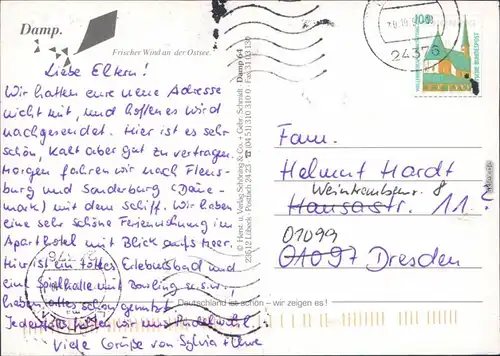 Damp.
Frischer Wind an der Ostsee.
Liebe Eltern!
Wir hatten eure neue Adresse
nicht mit, und hoffen es wird
nachgesendet. Hier ist es sehr
schön, kalt aber gut zu vertragen.
Morgen fahren wir nach Flens-
burg und Sonderburg (Däne-
mark) mit dem Schiff. Wir haben
eine sehr schöne Ferienwohnung im
Aparthotel mit Blick aufs Meer.
Hier ist ein tolles Erlebnisbad und
eine Spielhalle mit Bowling u.s.w.
haben alles schon genutzt.
Jedenfalls fühlen wir uns Pudelwohl.
Viele Grüße von Sylvia + Uwe
© Horst u. Verlag Schöning & Co. + Gebr. Schmidt · Damp 64
23512 Lübeck · Postfach 24 23 ☎ (04 51) 310 310 0 · Fax 31 03 130
24376
100
DEUTSCHE BUNDESPOST
Fam.
Helmut Hardt
Weintraubenstr. 8
Hansastr. 11
01099
01097 Dresden
Deutschland ist schön – wir zeigen es!